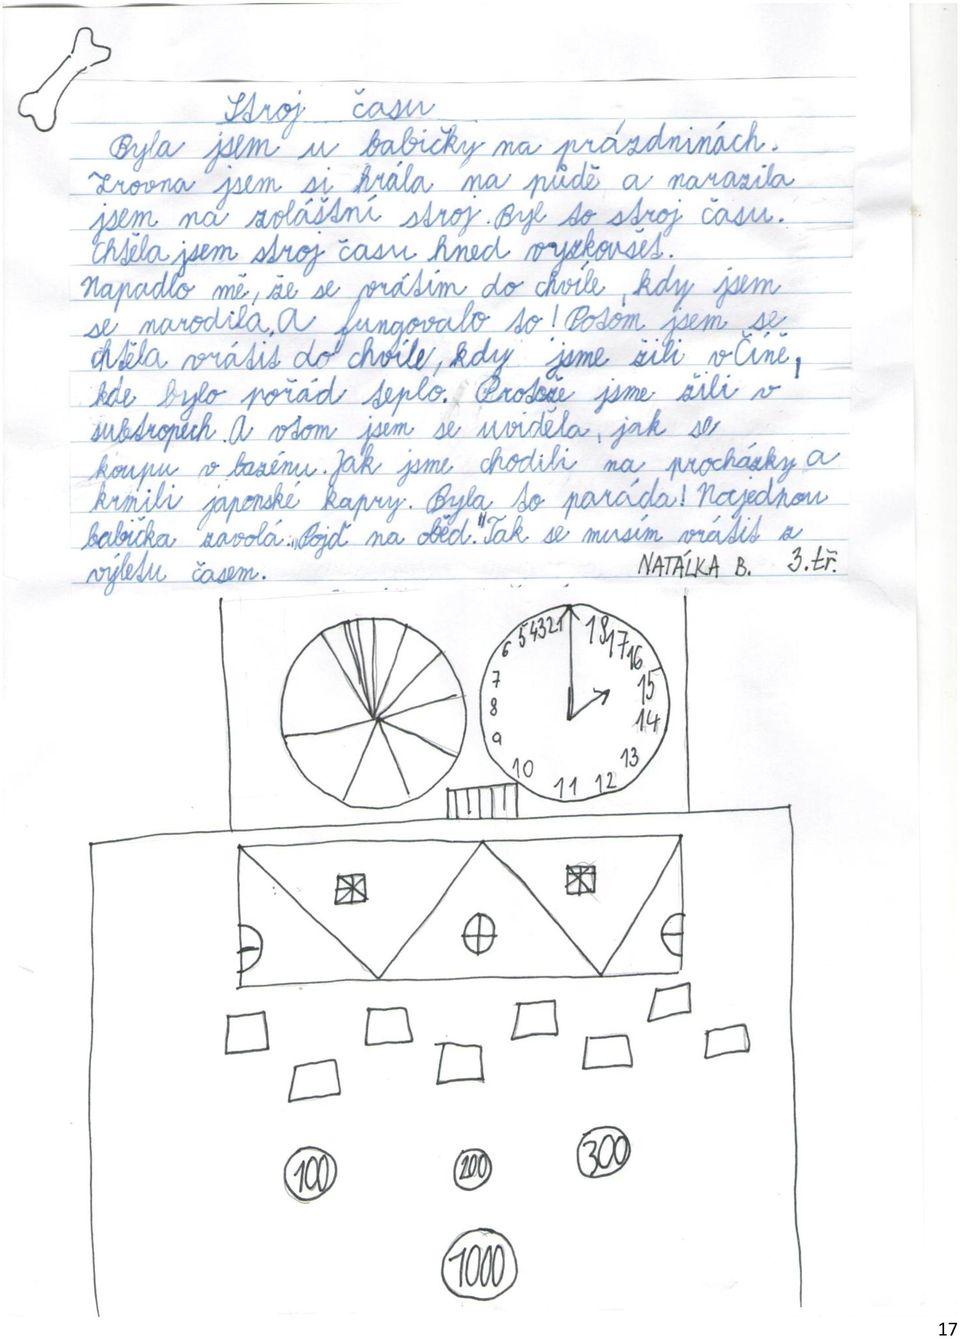 Stroj času
Byla jsem u babičky na prázdninách.
Zrovna jsem si hrála na půdě a narazila
jsem na zvláštní stroj. Byl to stroj času.
Chtěla jsem stroj času hned vyzkoušet.
Napadlo mě, že se vrátím do chvíle, kdy jsem
se narodila. A fungovalo to! Potom jsem se
chtěla vrátit do chvíle, kdy jsme žili v Číně,
kde bylo pořád teplo. Protože jsme žili v
subtropech. A vtom jsem se uviděla, jak se
koupu v bazénu. Jak jsme chodili na procházky a
krmili japonské kapry. Byla to paráda! Najednou
babička zavolá: „Pojď na oběd." Tak se musím vrátit z
výletu časem.
NATÁLKA B. 3. tř.
5 4 3 2 1 18 17 16
6
7 15
8 14
9
10 13
11 12
100 200 300
1000
17